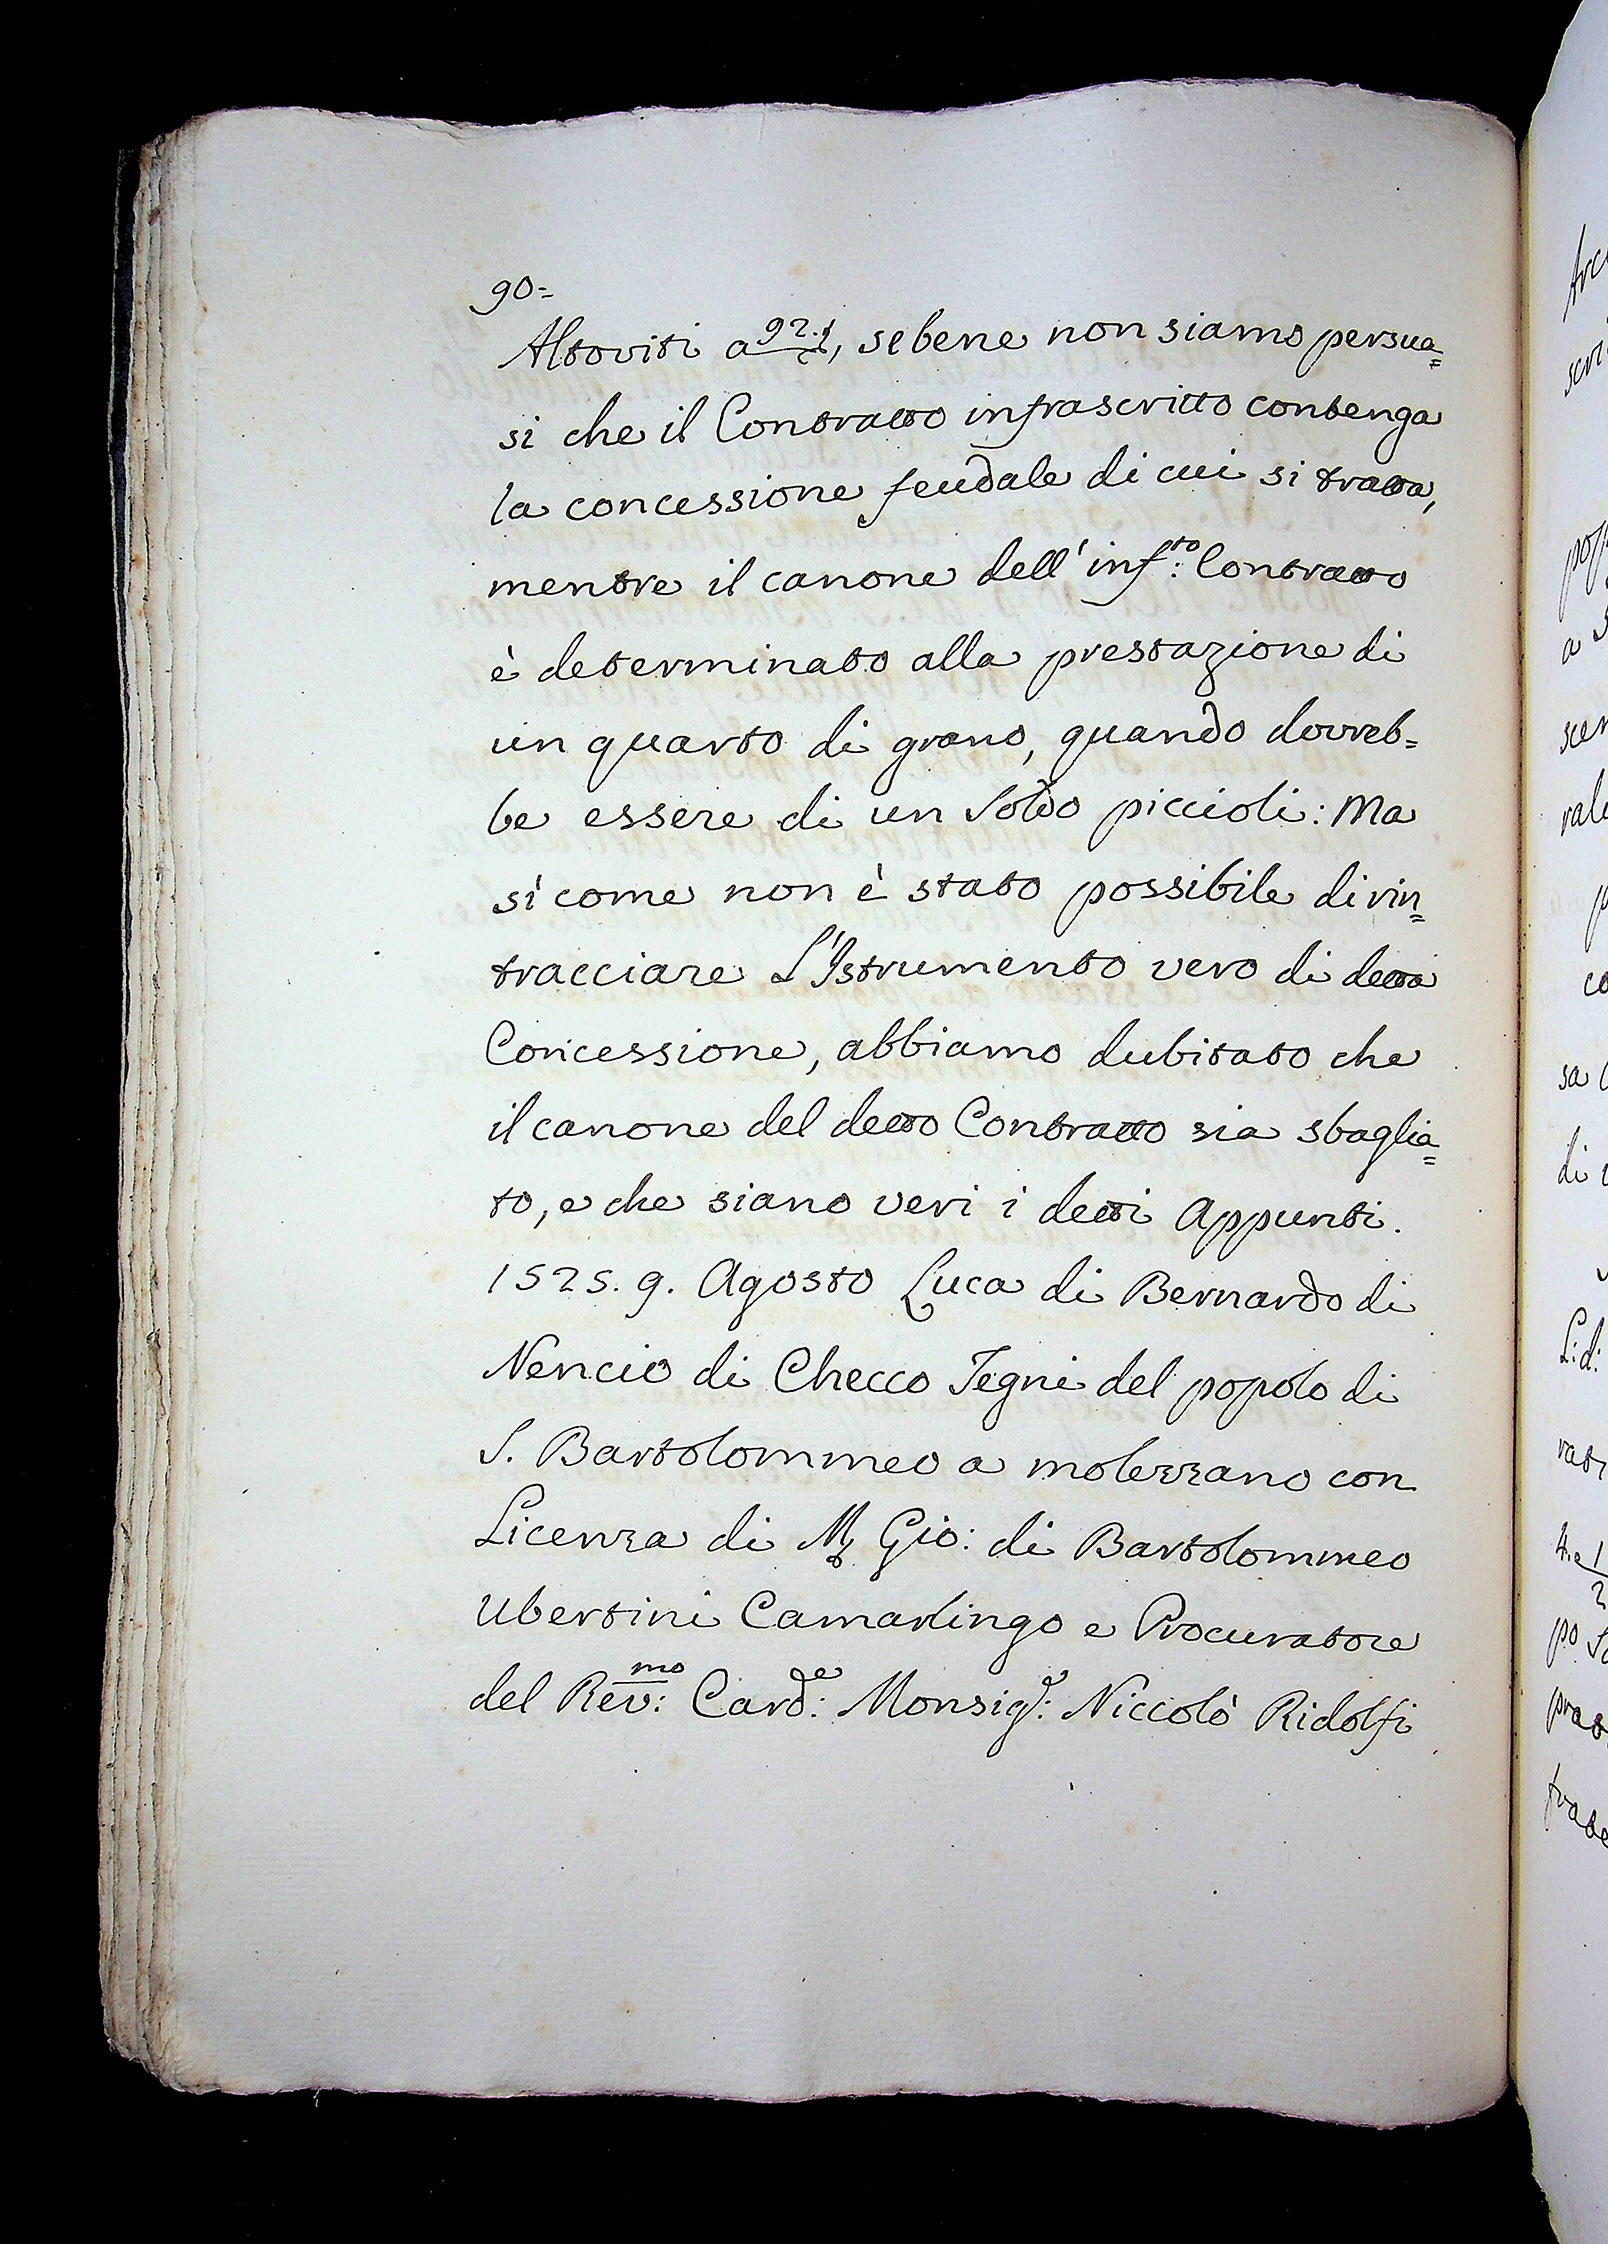 90=
Altoviti a 92.t, sebene non siamo persua=
si che il Contratto infrascritto contenga
la concessione feudale di cui si tratta,
mentre il canone dell' inf:to Contratto
è determinato alla prestazione di
un quarto di grano, quando dovreb=
be essere di un Soldo piccioli: Ma
sicome non è stato possibile di rin=
tracciare L'Istrumento vero di detta
Concessione, abbiamo dubitato che
il canone del detto Contratto sia sbaglia=
to, e che siano veri i detti Appunti.
1525. 9. Agosto Luca di Bernardo di
Nencio di Checco Tegni del popolo di
S. Bartolommeo a molezzano con
Licenza di M Gio: di Bartolommeo
Ubertini Camarlingo e Procuratore
del Rev:mo Card:e Monsig:e Niccolò Ridolfi